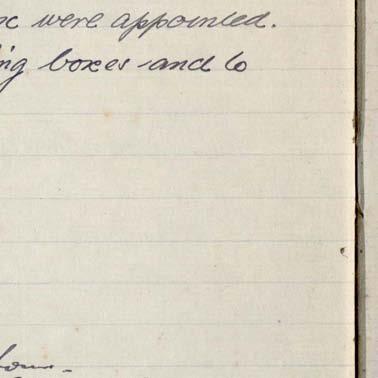 were appointed.
ing boxes and 6